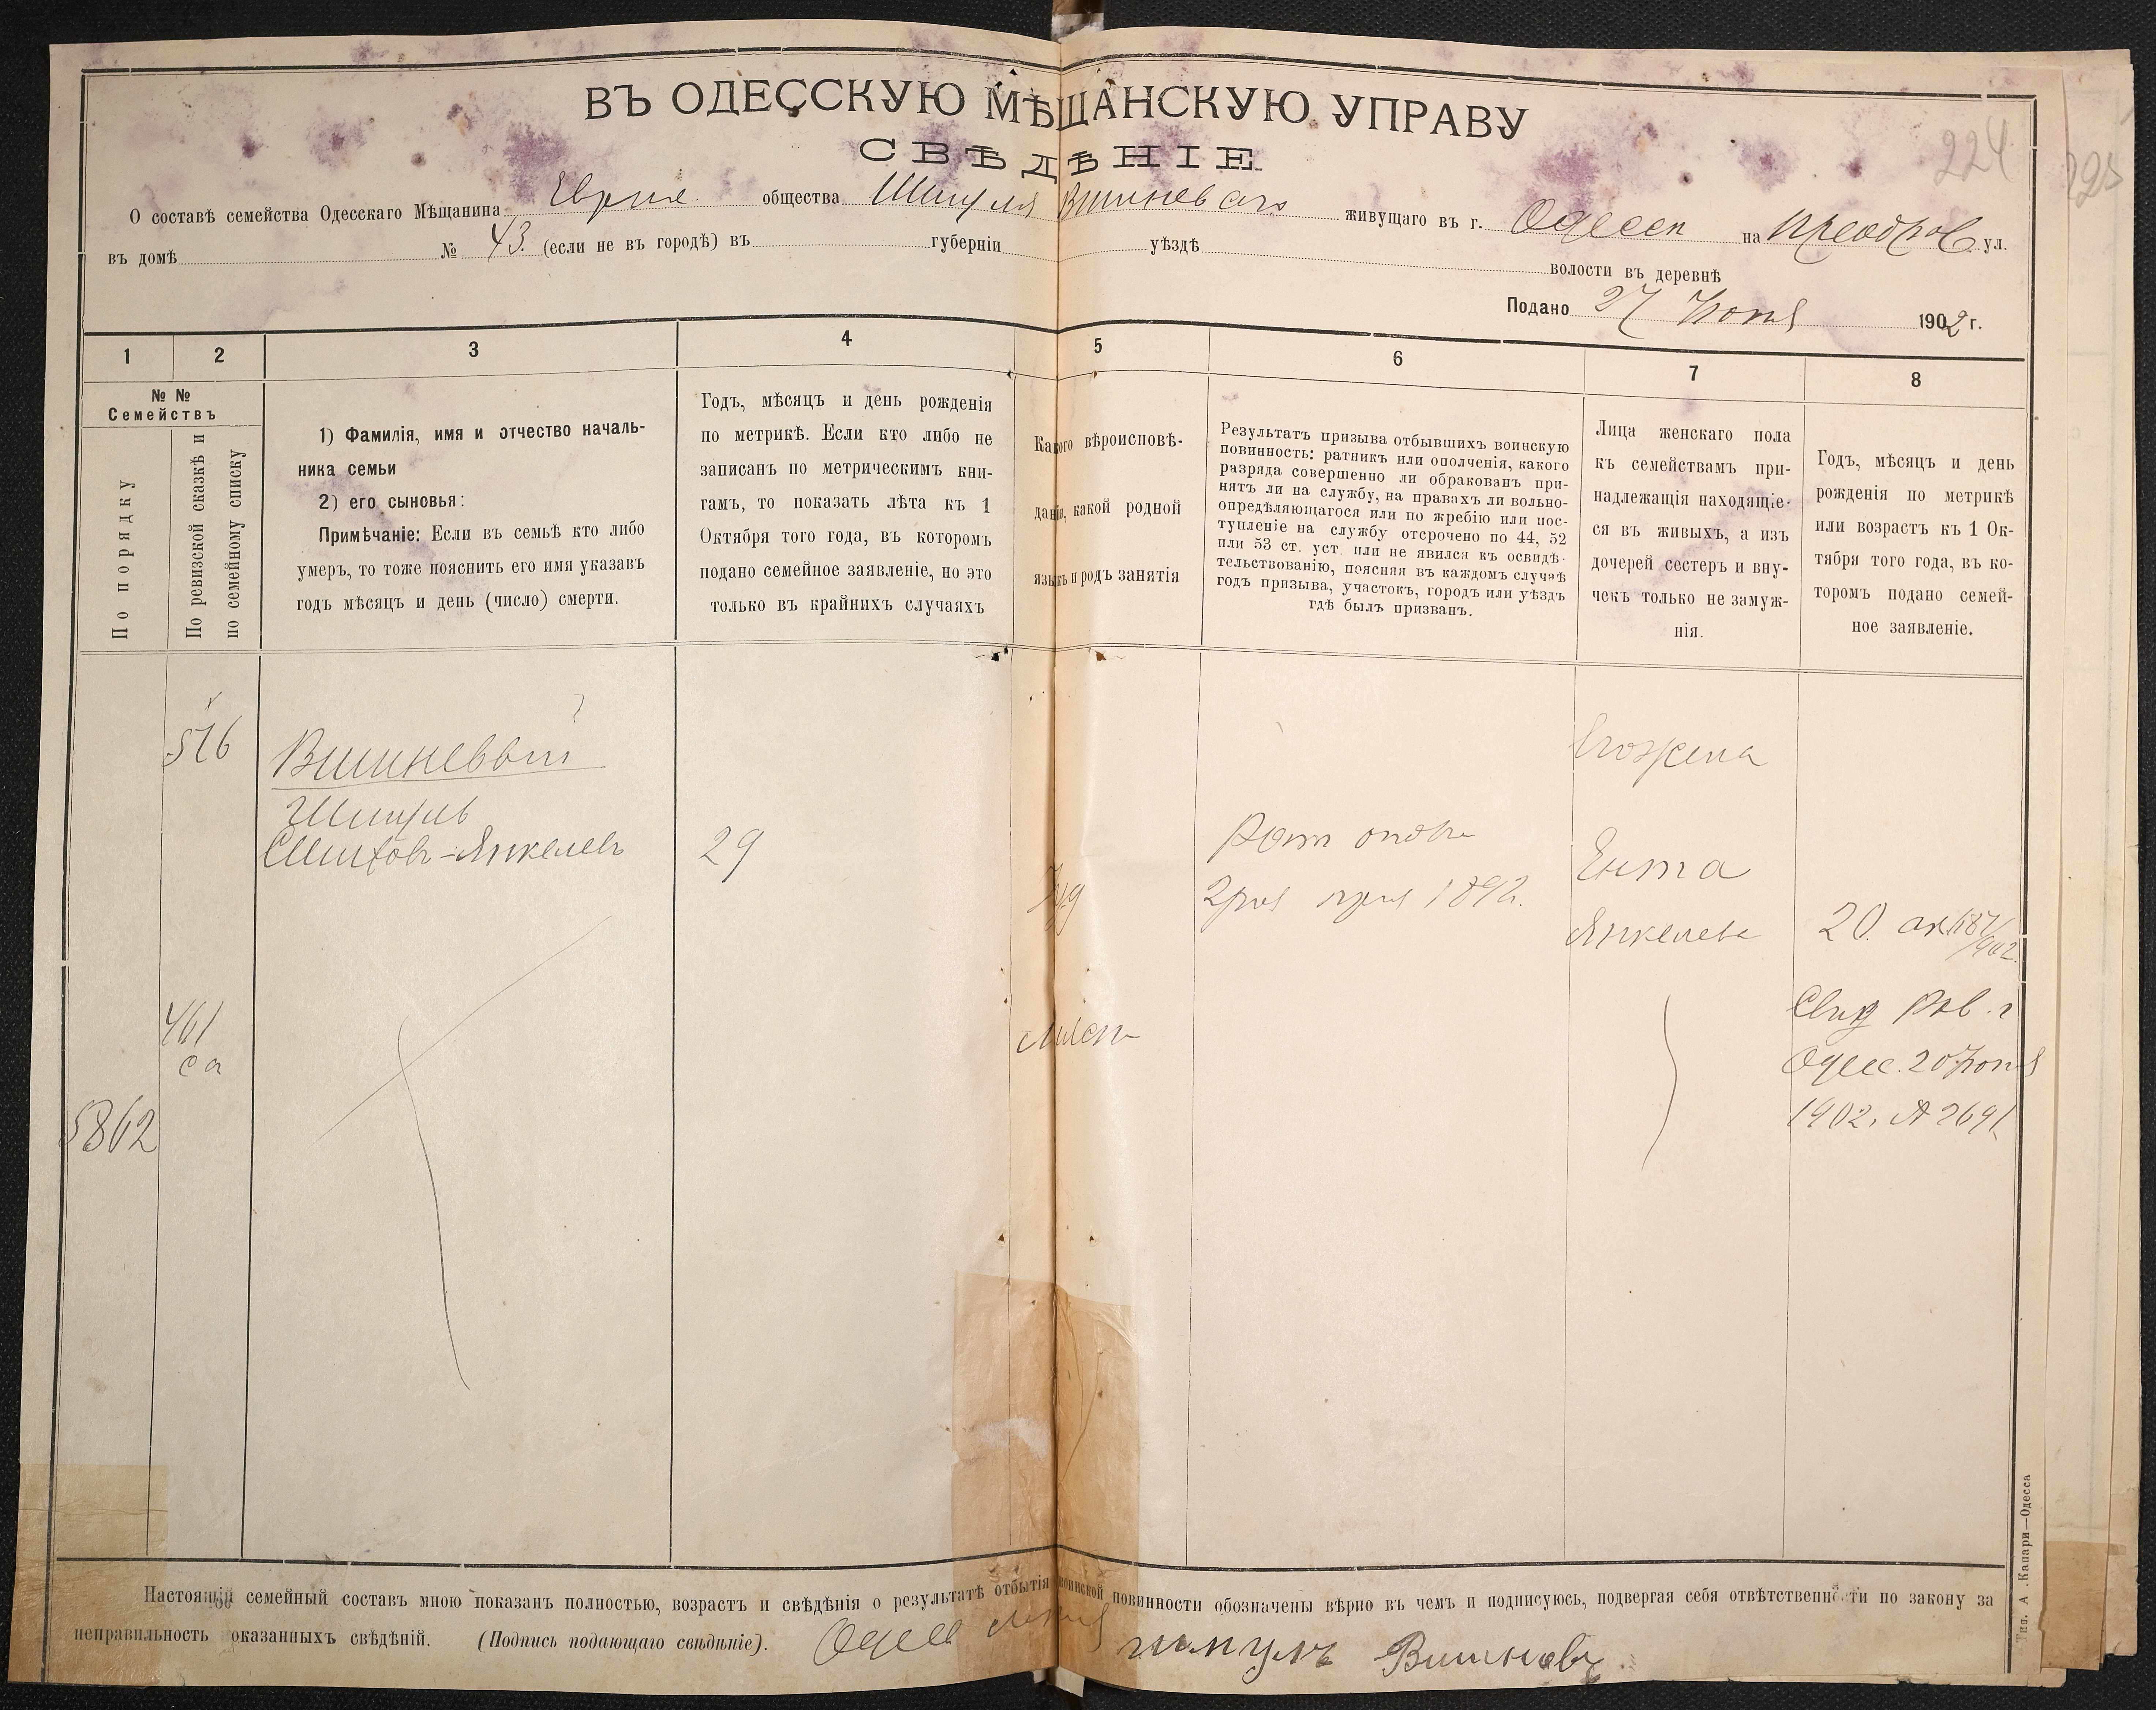 ВЪ ОДЕССКУЮ МѢЩАНСКУЮ УПРАВУ
СВѢДѢНІЕ
224
О составѣ семейства Одесскаго Мѣщанина общества Вишневскаго живущаго въ г. Одессѣ на Преображ ул.
въ домѣ № 43. (если не въ городѣ) въ губерніи уѣздѣ волости въ деревнѣ
Подано 27 Іюня 1902 г.
1 2 3 4 5 6 7 8
№ №
Семействъ
По порядку
По ревизской сказкѣ и
по семейному списку
1) Фамилія, имя и отчество началь-
ника семьи
2) его сыновья:
Примѣчаніе: Если въ семьѣ кто либо
умеръ, то тоже пояснить его имя указавъ
годъ мѣсяцъ и день (число) смерти.
Годъ, мѣсяцъ и день рожденія
по метрикѣ. Если кто либо не
записанъ по метрическимъ кни-
гамъ, то показать лѣта къ 1
Октября того года, въ которомъ
подано семейное заявленіе, но это
только въ крайнихъ случаяхъ
Какого вѣроисповѣ-
данія, какой родной
языкъ и родъ занятія
Результатъ призыва отбывшихъ воинскую
повинность: ратникъ или ополченія, какого
разряда совершенно ли обракованъ при-
нятъ ли на службу, на правахъ ли вольно-
опредѣляющагося или по жребію или пос-
тупленіе на службу отсрочено по 44, 52
или 53 ст. уст. или не явился къ освидѣ-
тельствованію, поясняя въ каждомъ случаѣ
годъ призыва, участокъ, городъ или уѣздъ
гдѣ былъ призванъ.
Лица женскаго пола
къ семействамъ при-
надлежащія находящіе-
ся въ живыхъ, а изъ
дочерей сестеръ и вну-
чекъ только не замуж-
нія.
Годъ, мѣсяцъ и день
рожденія по метрикѣ
или возрастъ къ 1 Ок-
тября того года, въ ко-
торомъ подано семей-
ное заявленіе.
516
Его жена
Янкелевъ 29
Ент а
Іуд
2 1892.
Янкелева 20.
461
са
Свид Рав. г
Одес. 20 Іюня
1902, № 2691
5862
Настоящій семейный составъ мною показанъ полностью, возрастъ и свѣдѣнія о результатѣ отбытія воинской повинности обозначены вѣрно въ чемъ и подписуюсь, подвергая себя отвѣтственности по закону за
неправильность оказанныхъ свѣдѣній. (Подпись подающаго свѣдѣніе).
Тип. А. Капари—Одесса